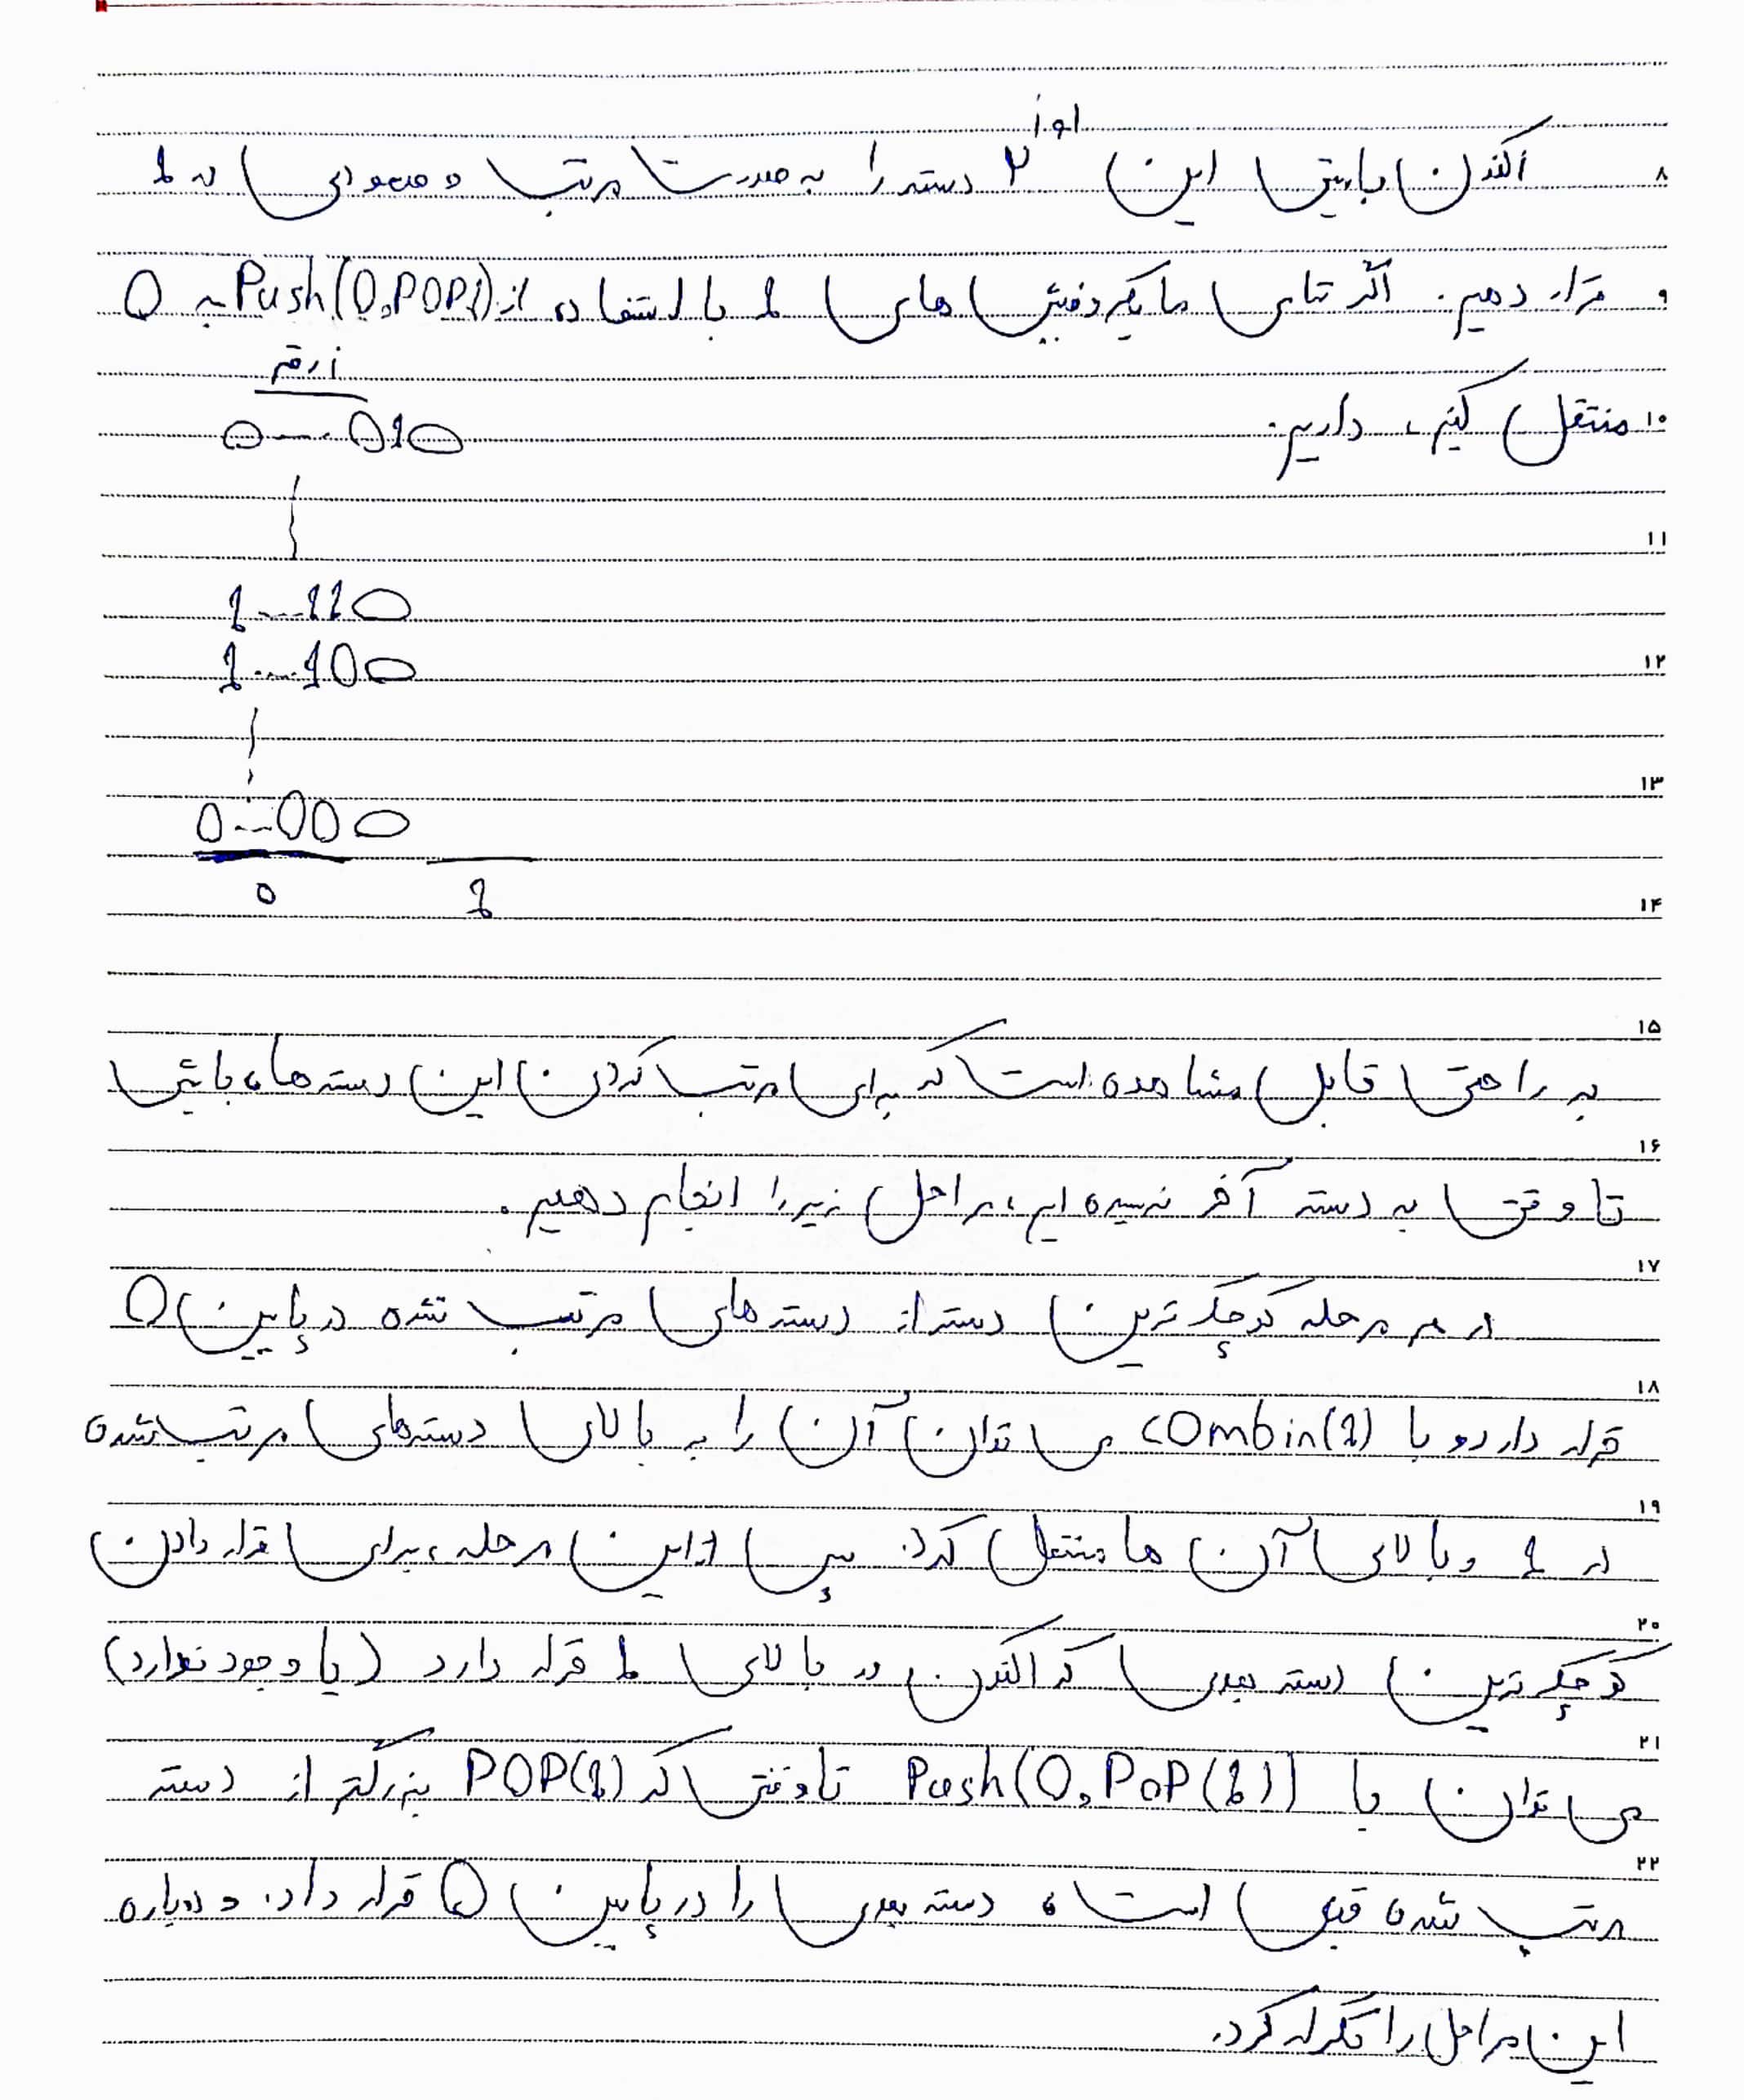 i-1
۸ اکنون بایستی این ۲ دسته را به صورت مرتب و صعودی در 1
۹ قرار دهیم. اگر تمامی های 1 با استفاده از Push(0,POP1) به 0
i رقم
۱۰ منتقل کنیم، داریم:
0--010
۱۱
1---110
۱۲
1---100
۱۳
0--000
0 1
۱۴
۱۵
به راحتی قابل مشاهده است که برای مرتب کردن این دسته ها، بایستی
۱۶
تا وقتی به دسته آخر نرسیده ایم، مراحل زیر را انجام دهیم.
۱۷
در هر مرحله کوچک ترین دسته از دسته های مرتب نشده در پایین 0
۱۸
قرار دارد و با combin(1) می توان آن را به بالای دسته های مرتب شده
۱۹
در 1 و بالای آن ها منتقل کرد. پس از این مرحله، برای قرار دادن
۲۰
کوچک ترین دسته بعدی که اکنون در بالای 1 قرار دارد (یا وجود ندارد)
۲۱
می توان با Push(0,POP(1)) تا وقتی که POP(1) بزرگتر از دسته
۲۲
مرتب شده قبلی است، دسته بعدی را در پایین 0 قرار داد. و دوباره
این مراحل را تکرار کرد.